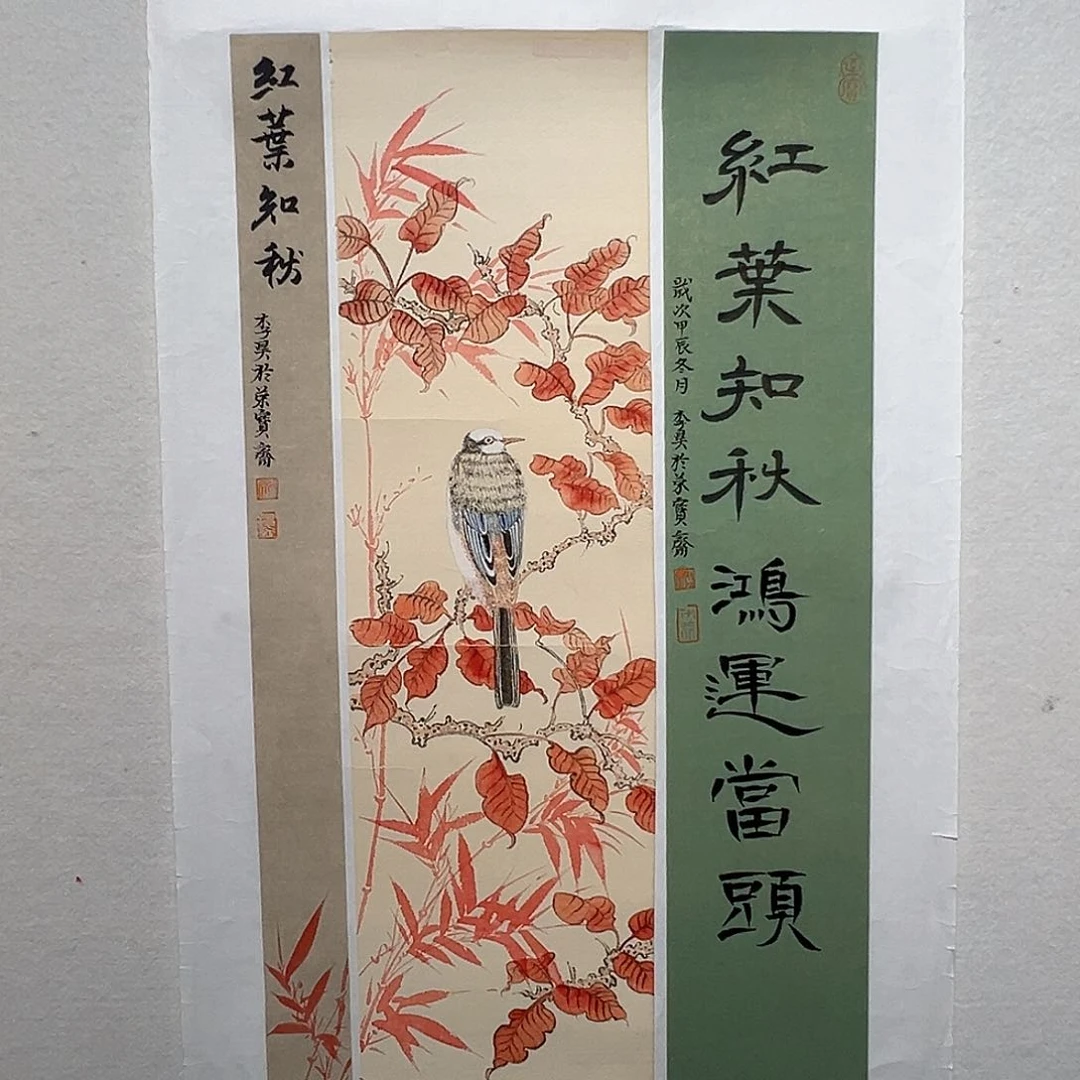 紅葉知秋鴻運當頭
歲次甲辰冬月 李昊於荣寶齋
紅葉知秋
李昊於荣寶齋